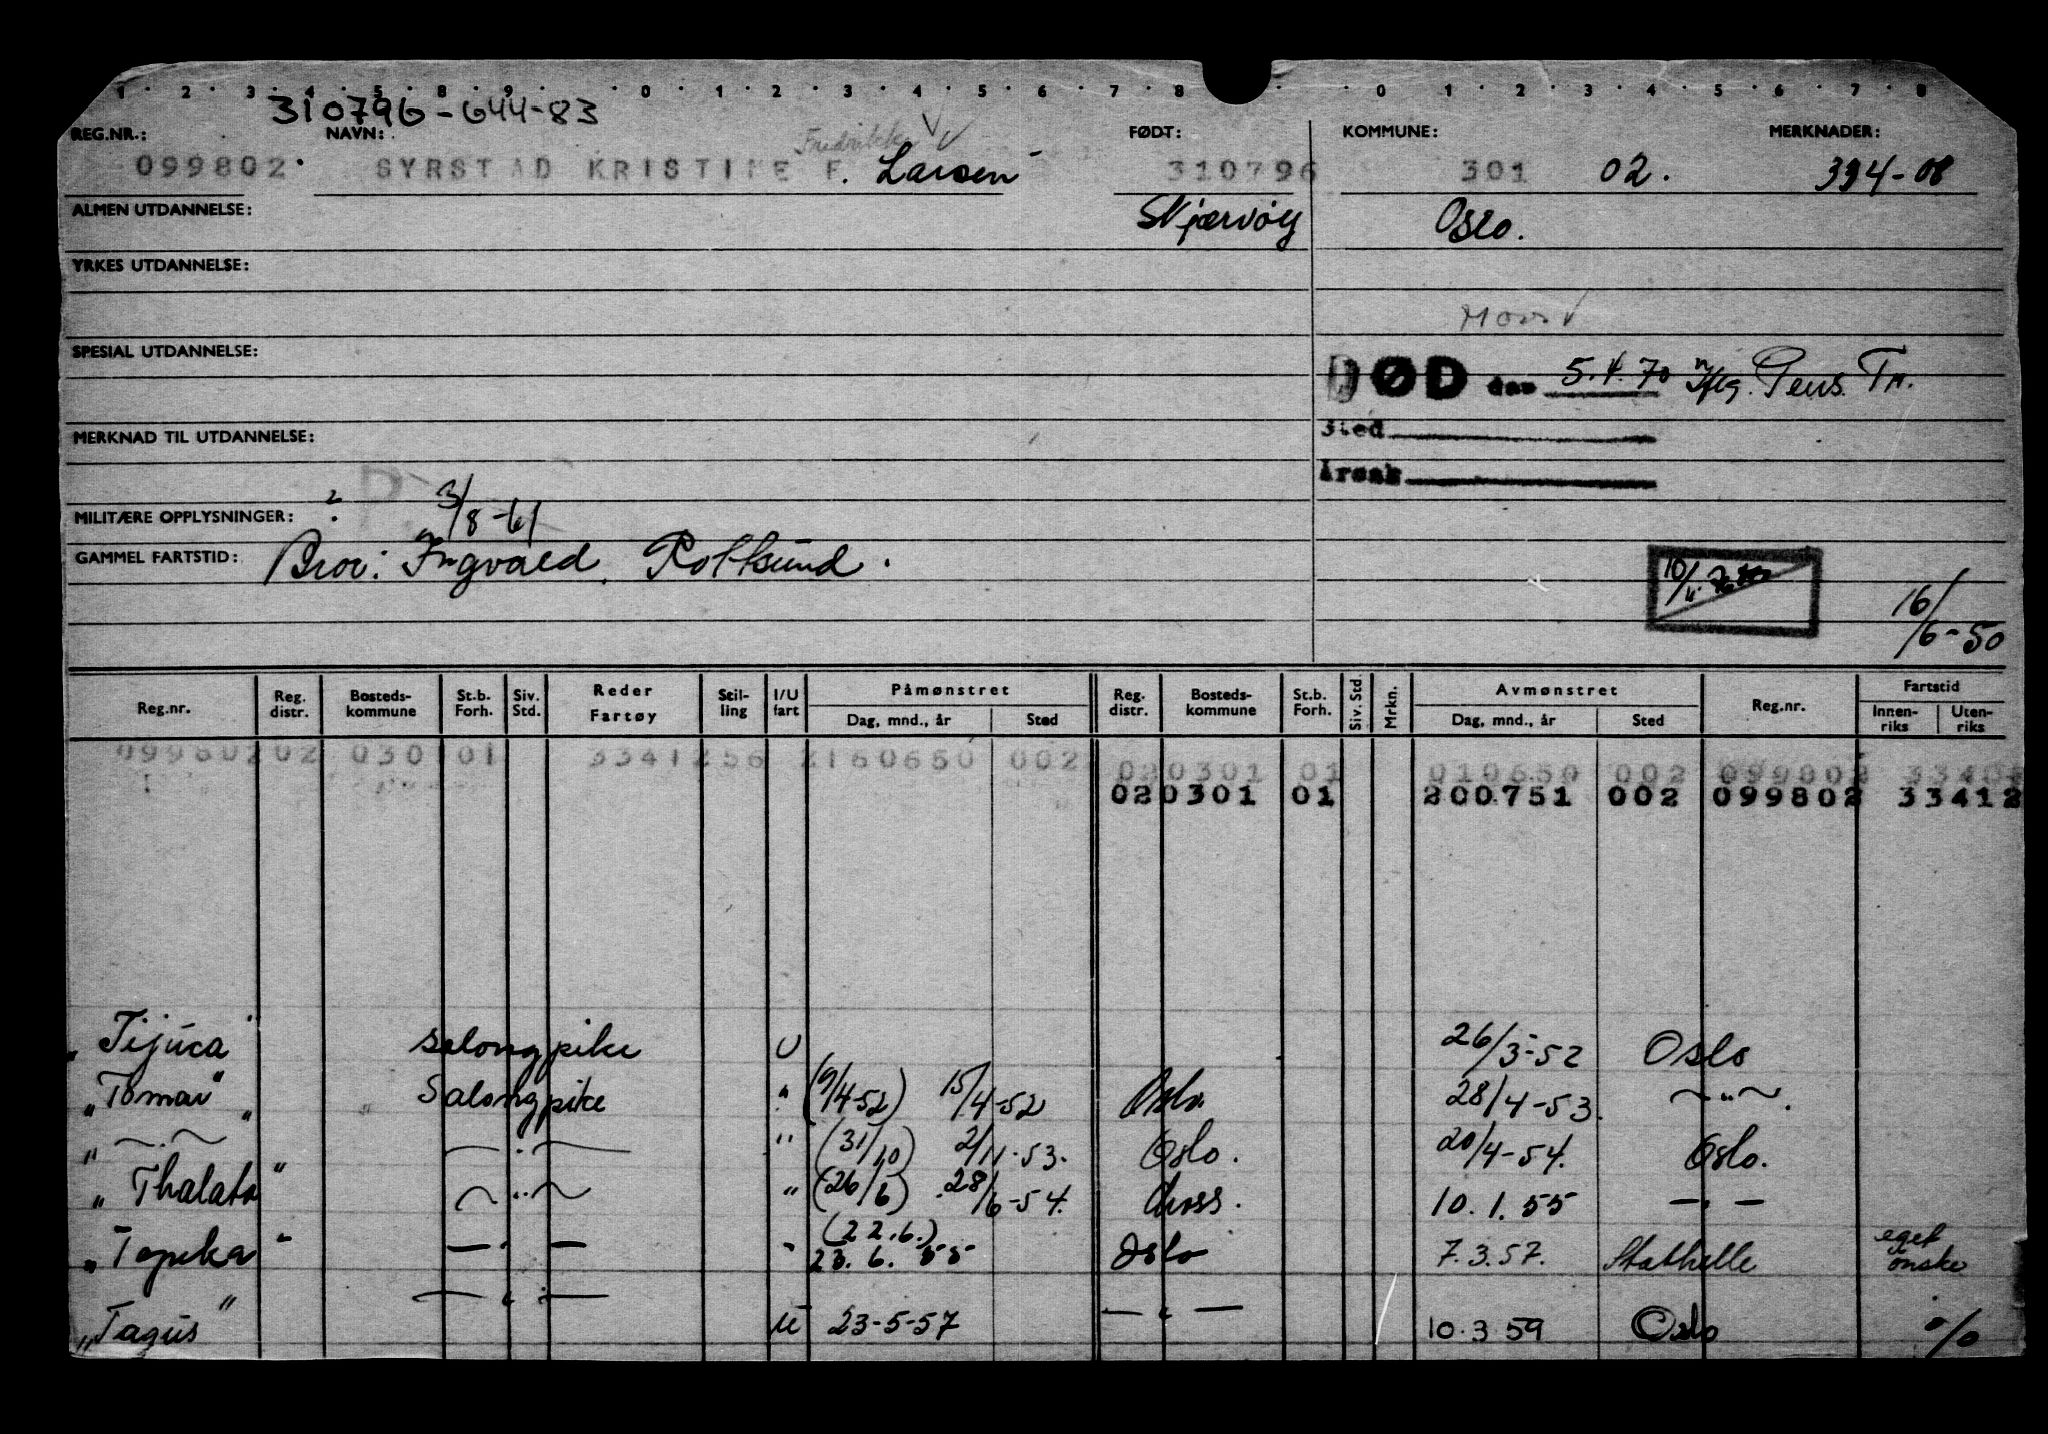 1 2 3 4 5 8 9 0 1 2 3 4 5 6 7 8 0 1 2 3 4 5 6 7 8
310796-644-83
REG.NR.: NAVN: FØDT: KOMMUNE: MERKNADER:
Fredrikke
099802 SYRSTAD KRISTINE F. Larsen 310796 301 02. 394-08
ALMEN UTDANNELSE: Skjervøy Oslo.
YRKES UTDANNELSE:
SPESIAL UTDANNELSE:
DØD den 5.4.70 Pens. Tr.
MERKNAD TIL UTDANNELSE:
Sted
Årsak
MILITÆRE OPPLYSNINGER: ? 3/8-61
GAMMEL FARTSTID: Bror: Ingvald.
10/11.70
16/6-50
Reg.nr. Reg. distr. Bosteds-kommune St.b. Forh. Siv. Std. Reder Fartøy Stil-ling I/U fart Påmønstret Dag, mnd., år Sted Reg. distr. Bosteds-kommune St.b. Forh. Siv. Std. Mrkn. Avmønstret Dag, mnd., år Sted Reg.nr. Fartstid Innen-riks Uten-riks
09980202 030101 3341256 2160650 002 020301 01 010650 002 099802
020301 01 200751 002 099802 33412
"Tijuca" salongpike U 26/3-52 Oslo
"Tomar" Salongpike " (9/4-52) 15/4-52 Oslo. 28/4-53. — " —.
" — . — " — . — " (31/10) 2/11-53. Oslo. 20/4-54. Oslo.
"Thalatta" — " — " (26/6) 28/6-54. Moss. 10.1.55 — . —
"Topeka" — . — " (22.6.) 23.6.55 Oslo 7.3.57. Stathelle eget ønske
"Tagus" — " — U 23-5-57 — " — 10.3 59 Oslo %